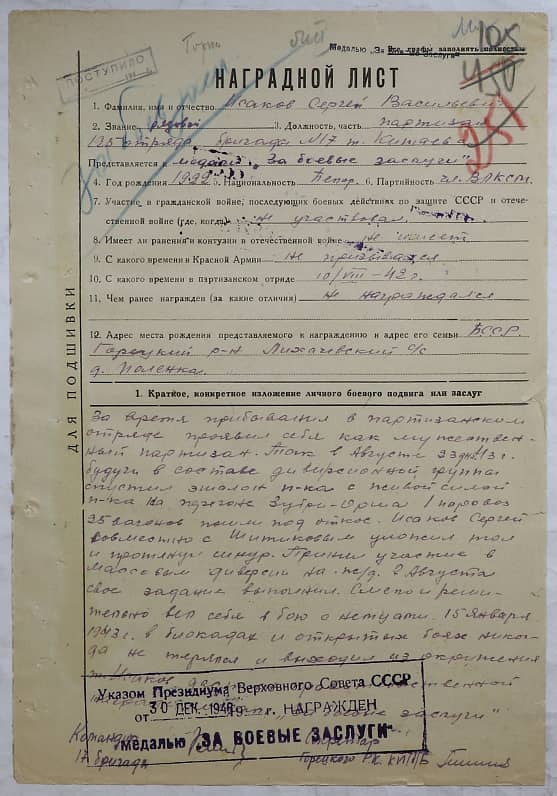 105
Медалью „За Боевые заслуги"
Все графы заполнять полностью
ПОСТУПИЛО
251
НАГРАДНОЙ ЛИСТ
1. Фамилия, имя и отчество Исаков Сергей Васильевич
2. Звание рядовой 3. Должность, часть партизан
175 отряда бригады №17 т. Китаева
Представляется к медали „За боевые заслуги"
4. Год рождения 1922 5. Национальность белор. 6. Партийность чл. ВЛКСМ
7. Участие в гражданской войне, последующих боевых действиях по защите СССР и отече-
ственной войне (где, когда) не участвовал
8. Имеет ли ранения и контузии в отечественной войне не имеет
9. С какого времени в Красной Армии не призывался
10. С какого времени в партизанском отряде 10/VIII-42 г.
11. Чем ранее награжден (за какие отличия) не награждался
12. Адрес места рождения представляемого к награждению и адрес его семьи БССР
Горецкий р-н Лихачевский с/с
д. Поленка.
ДЛЯ ПОДШИВКИ
1. Краткое, конкретное изложение личного боевого подвига или заслуг
За время прибывания в партизанском
отряде проявил себя как мужествен-
ный партизан. Так в Августе 43 г.
будучи в составе диверсионной группы
спустил эшалон п-ка с живой силой
п-ка на перегоне Зубри-Орша 1 паровоз
35 вагонов пошли под откос. Исаков Сергей
совместно с Шитиковым уложил тол
и протянул шнур. Принял участие в
массовым диверсии на ж/д. 2 Августа
свое задание выполнил. Смело и реши-
тельно вел себя в бою 15 Января
1943 г. в блокадах и открытых боях никог-
да не терялся и выходил из окружения
т. Исаков
Указом Президиума Верховного Совета СССР
от 30 ДЕК. 1948 г. НАГРАЖДЕН
медалью „ЗА БОЕВЫЕ ЗАСЛУГИ"
боевые заслуги"
Командир Секретар
17 бригады Горецкого РК КП/б/Б